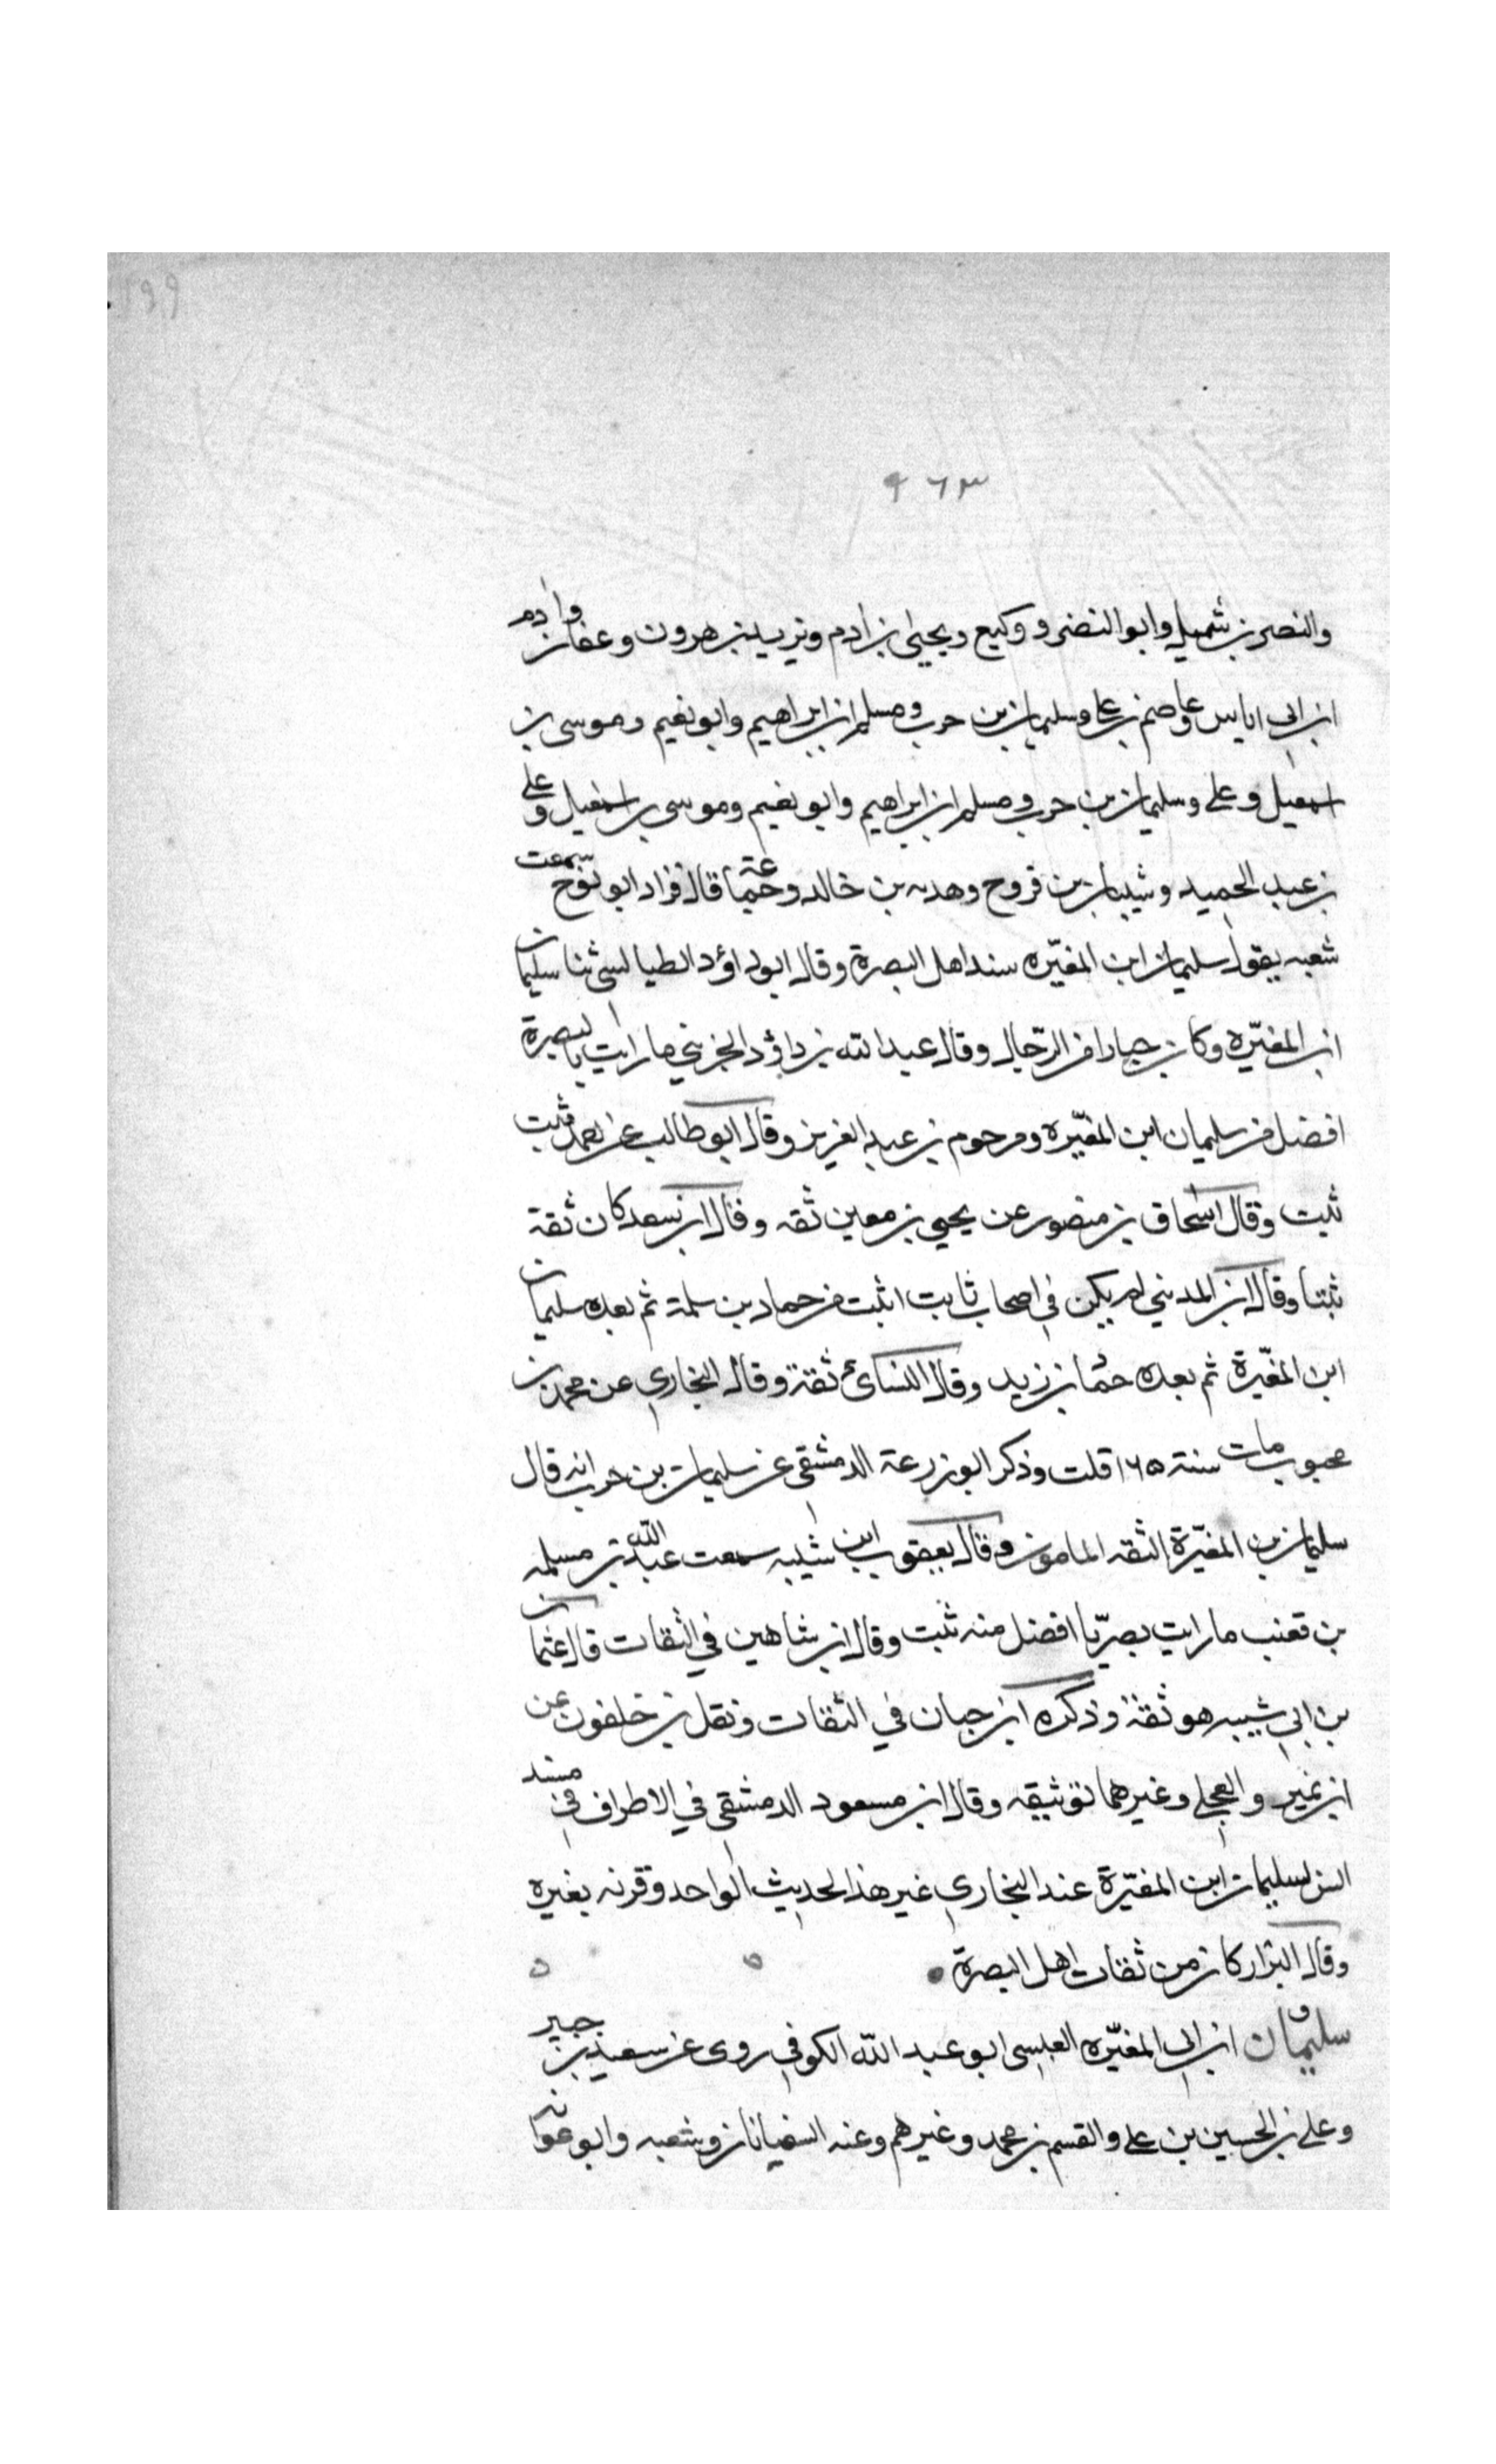 ۹۶۳
والنضر بن شميل وابو النضر و وكيع ويحيى بن ادم ويزيد بن هرون وعفان وادم
ابن ابي اياس وعاصم بن علي وسليمان بن حرب ومسلم ابن ابراهيم وابو نعيم وموسى بن
اسمعيل وعلي وسليمان بن حرب ومسلم ابن ابراهيم وابو نعيم وموسى بن اسمعيل وعلي
بن عبد الحميد وشيبان بن فروح وهدبه بن خالد وجماعة قال قراد ابو نوح سمعت
شعبه يقول سليمان ابن المغيّره سند اهل البصرة وقال ابو داؤد الطيالسي ثنا سليمان
ابن المغيّره وكان خيارا من الرّجال وقال عبد الله بن داؤد الخريبي ما رايت بالبصرة
افضل من سليمان ابن المغيّره ومرحوم بن عبد العزيز وقال ابو طالب عن احمد ثبت
ثبت وقال اسحاق بن منصور عن يحيى بن معين ثقه وقال ابن سعد كان ثقة
ثبتا وقال ابن المديني لم يكن في اصحاب ثابت اثبت من حماد بن سلمة ثم بعده سليمان
ابن المغيّرة ثم بعده حماد بن زيد وقال النسائ ثقة وقال البخاري عن محمد بن
محبوب مات سنة ۱۶۵ قلت وذكر ابو زرعة الدمشقي عن سليمان بن حرب انه قال
سليمان بن المغيّرة الثقه المامون وقال يعقوب ابن شيبه سمعت عبد الله بن مسلمه
بن قعنب ما رايت بصريّا افضل منه ثبت وقال ابن شاهين في الثقات قال عثمان
بن ابي شيبه هو ثقة وذكره ابن حبان في الثقات ونقل بن خلفون عن
ابن نمير والعجلي وغيرهما توثيقه وقال ابن مسعود الدمشقي في الاطراف في مسند
انس ليس لسليمان ابن المغيّرة عند البخاري غير هذا الحديث الواحد وقرنه بغيره
وقال البزار كان من ثقات اهل البصرة
سليمان ابن ابي المغيّره العبسي ابو عبد الله الكوفي روى عن سعيد بن جبير
وعلي بن الحسين بن علي والقسم بن محمد وغيرهم وعنه السفيانان وشعبه وابو عوانه